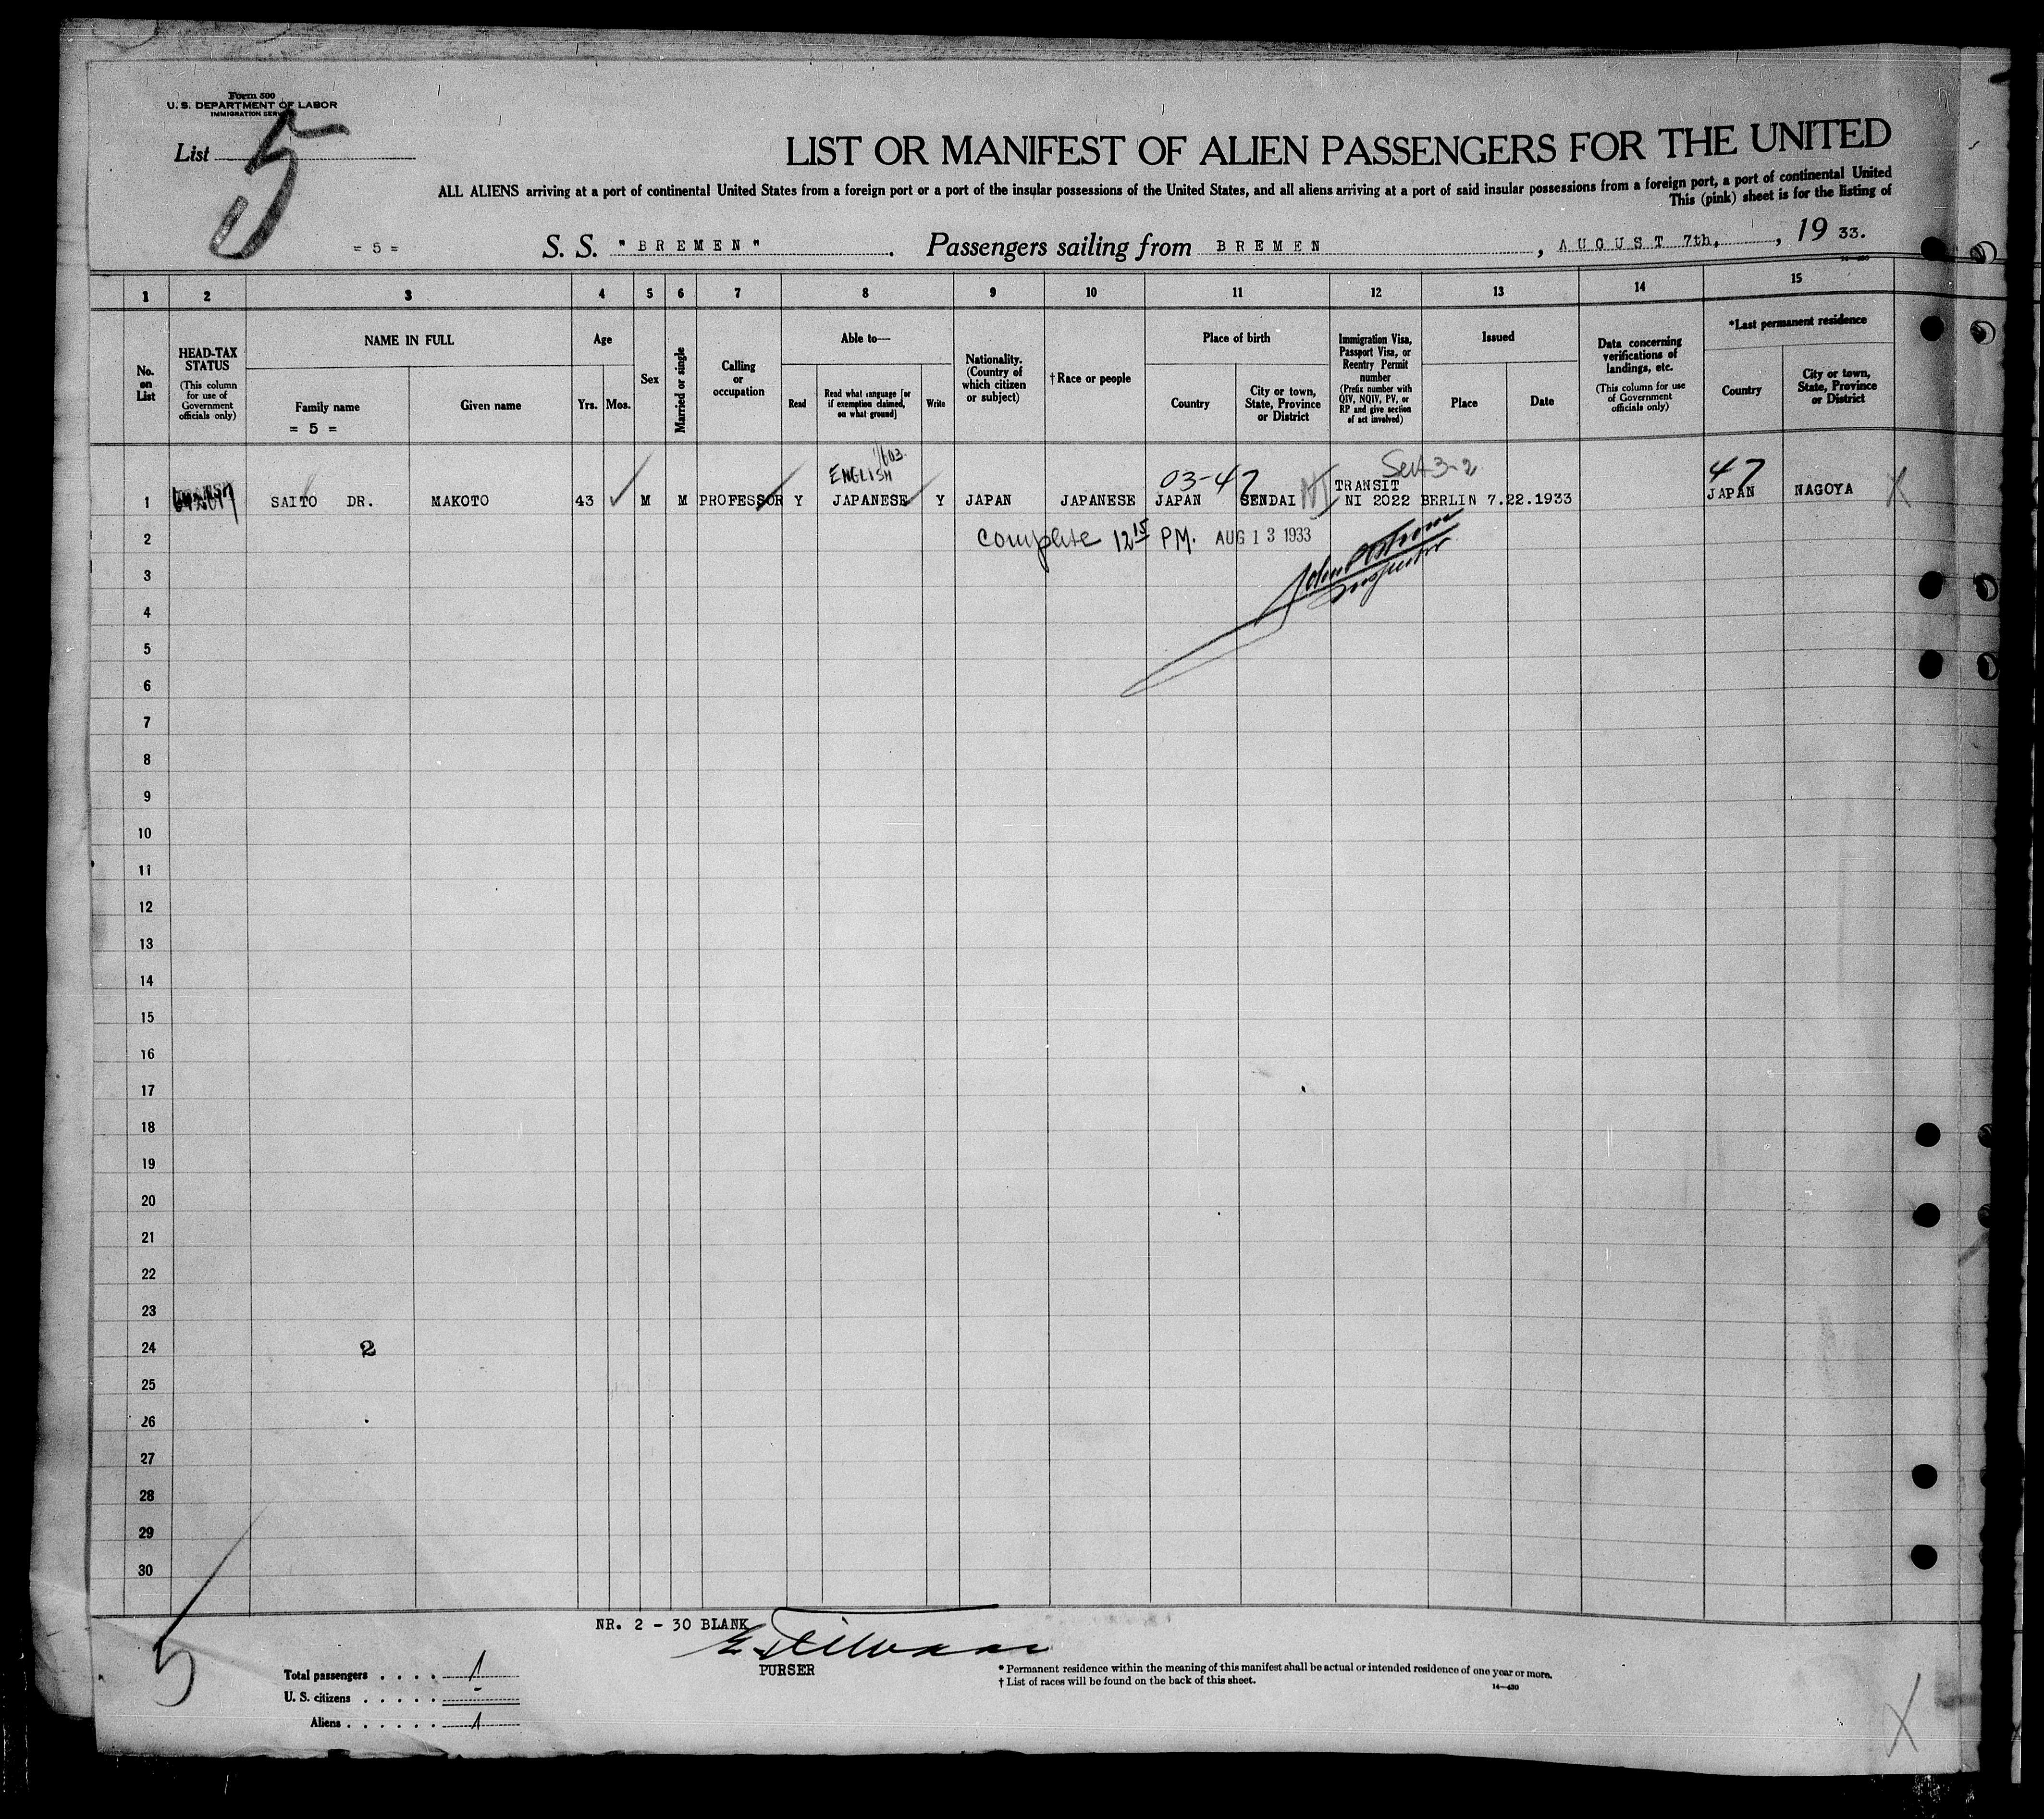 Form 500
U. S. DEPARTMENT OF LABOR
IMMIGRATION SERV
List 5
LIST OR MANIFEST OF ALIEN PASSENGERS FOR THE UNITED
ALL ALIENS arriving at a port of continental United States from a foreign port or a port of the insular possessions of the United States, and all aliens arriving at a port of said insular possessions from a foreign port, a port of continental United
This (pink) sheet is for the listing of
= 5 = S. S. "BREMEN". Passengers sailing from BREMEN, AUGUST 7th., 1933.
1 2 3 4 5 6 7 8 9 10 11 12 13 14 15
No. on List
HEAD-TAX STATUS
(This column for use of Government officials only)
NAME IN FULL
Family name
= 5 =
Given name
Age
Yrs. Mos.
Sex
Married or single
Calling or occupation
Able to—
Read
Read what language [or if exemption claimed, on what ground]
Write
Nationality. (Country of which citizen or subject)
†Race or people
Place of birth
Country
City or town, State, Province or District
Immigration Visa, Passport Visa, or Reentry Permit number
(Prefix number with QIV, NQIV, PV, or RP and give section of act involved)
Issued
Place
Date
Data concerning verifications of landings, etc.
(This column for use of Government officials only)
*Last permanent residence
Country
City or town, State, Province or District
ENGLISH 03-47 TRANSIT Sect 3-2 47
1 SAITO DR. MAKOTO 43 M M PROFESSOR Y JAPANESE Y JAPAN JAPANESE JAPAN SENDAI NI 2022 BERLIN 7.22.1933 JAPAN NAGOYA X
2 complete 12 15 PM. AUG 13 1933
3 Inspector
4
5
6
7
8
9
10
11
12
13
14
15
16
17
18
19
20
21
22
23
24 2
25
26
27
28
29
30
NR. 2 - 30 BLANK
PURSER
5
Total passengers . . . . 1
U. S. citizens . . . . . -
Aliens . . . . . . 1
* Permanent residence within the meaning of this manifest shall be actual or intended residence of one year or more.
† List of races will be found on the back of this sheet.
14—430
X